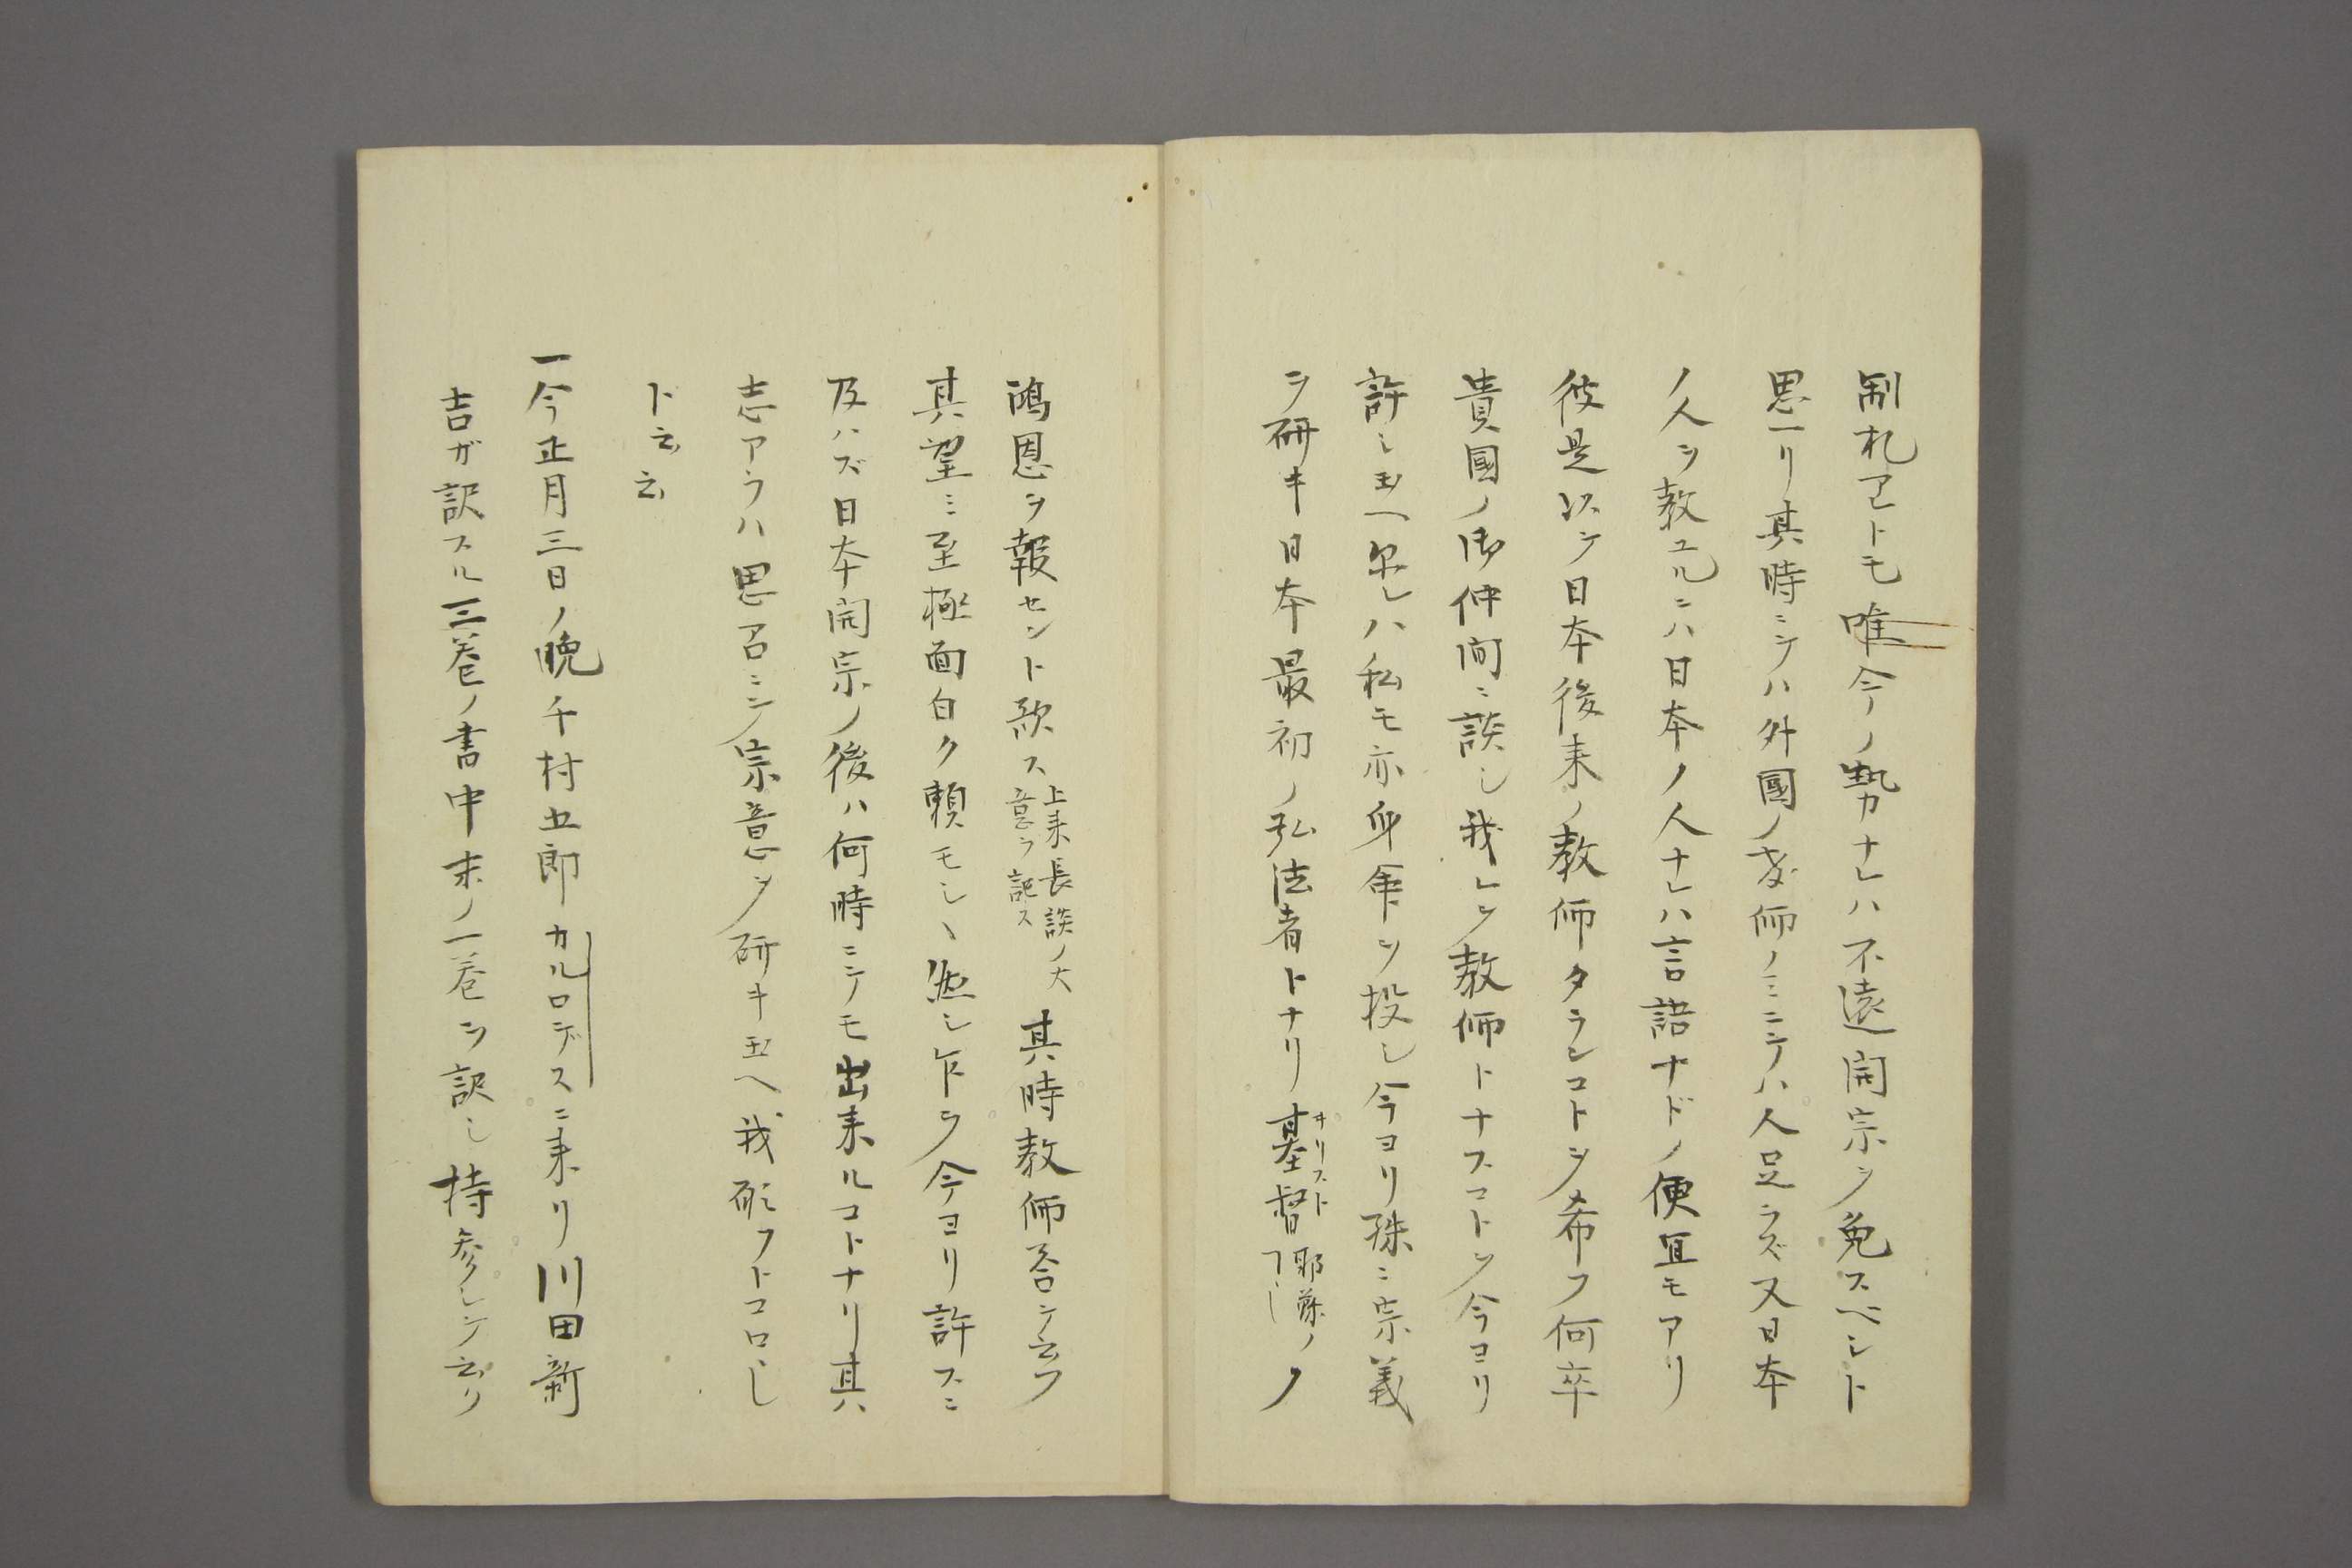 制札アレトモ唯今ノ勢ナレハ不遠開宗ヲ免スベシト
思ヘリ其時ニテハ外國ノ教師ノミニテハ人足ラズ又日本
ノ人ヲ教ユルニハ日本ノ人ナレハ言語ナドノ便宜モアリ
彼是以テ日本後来ノ教師タランコトヲ希フ何卒
貴國ノ御仲間ニ談シ我レヲ教師トナスコトヲ今ヨリ
許シ玉ヘ然レハ私モ亦身命ヲ投シ今ヨリ殊ニ宗義
ヲ研キ日本最初ノ弘法者トナリ基督キリスト耶蘇ノコトノ
鴻恩ヲ報セント欲ス上来長談ノ大意ヲ記ス其時教師答テ云フ
其望ミ至極面白ク頼モシヽ然シ乍ラ今ヨリ許スニ
及ハズ日本開宗ノ後ハ何時ニテモ出来ルコトナリ其ハ
志アラハ思召ニテ宗意ヲ研キ玉ヘ我願フトコロシ
ト云云
一今正月三日ノ晩千村五郎カルロデスニ来リ川田新
吉ガ訳スル三巻ノ書中末ノ一巻ヲ訳シ持参シテ云リ